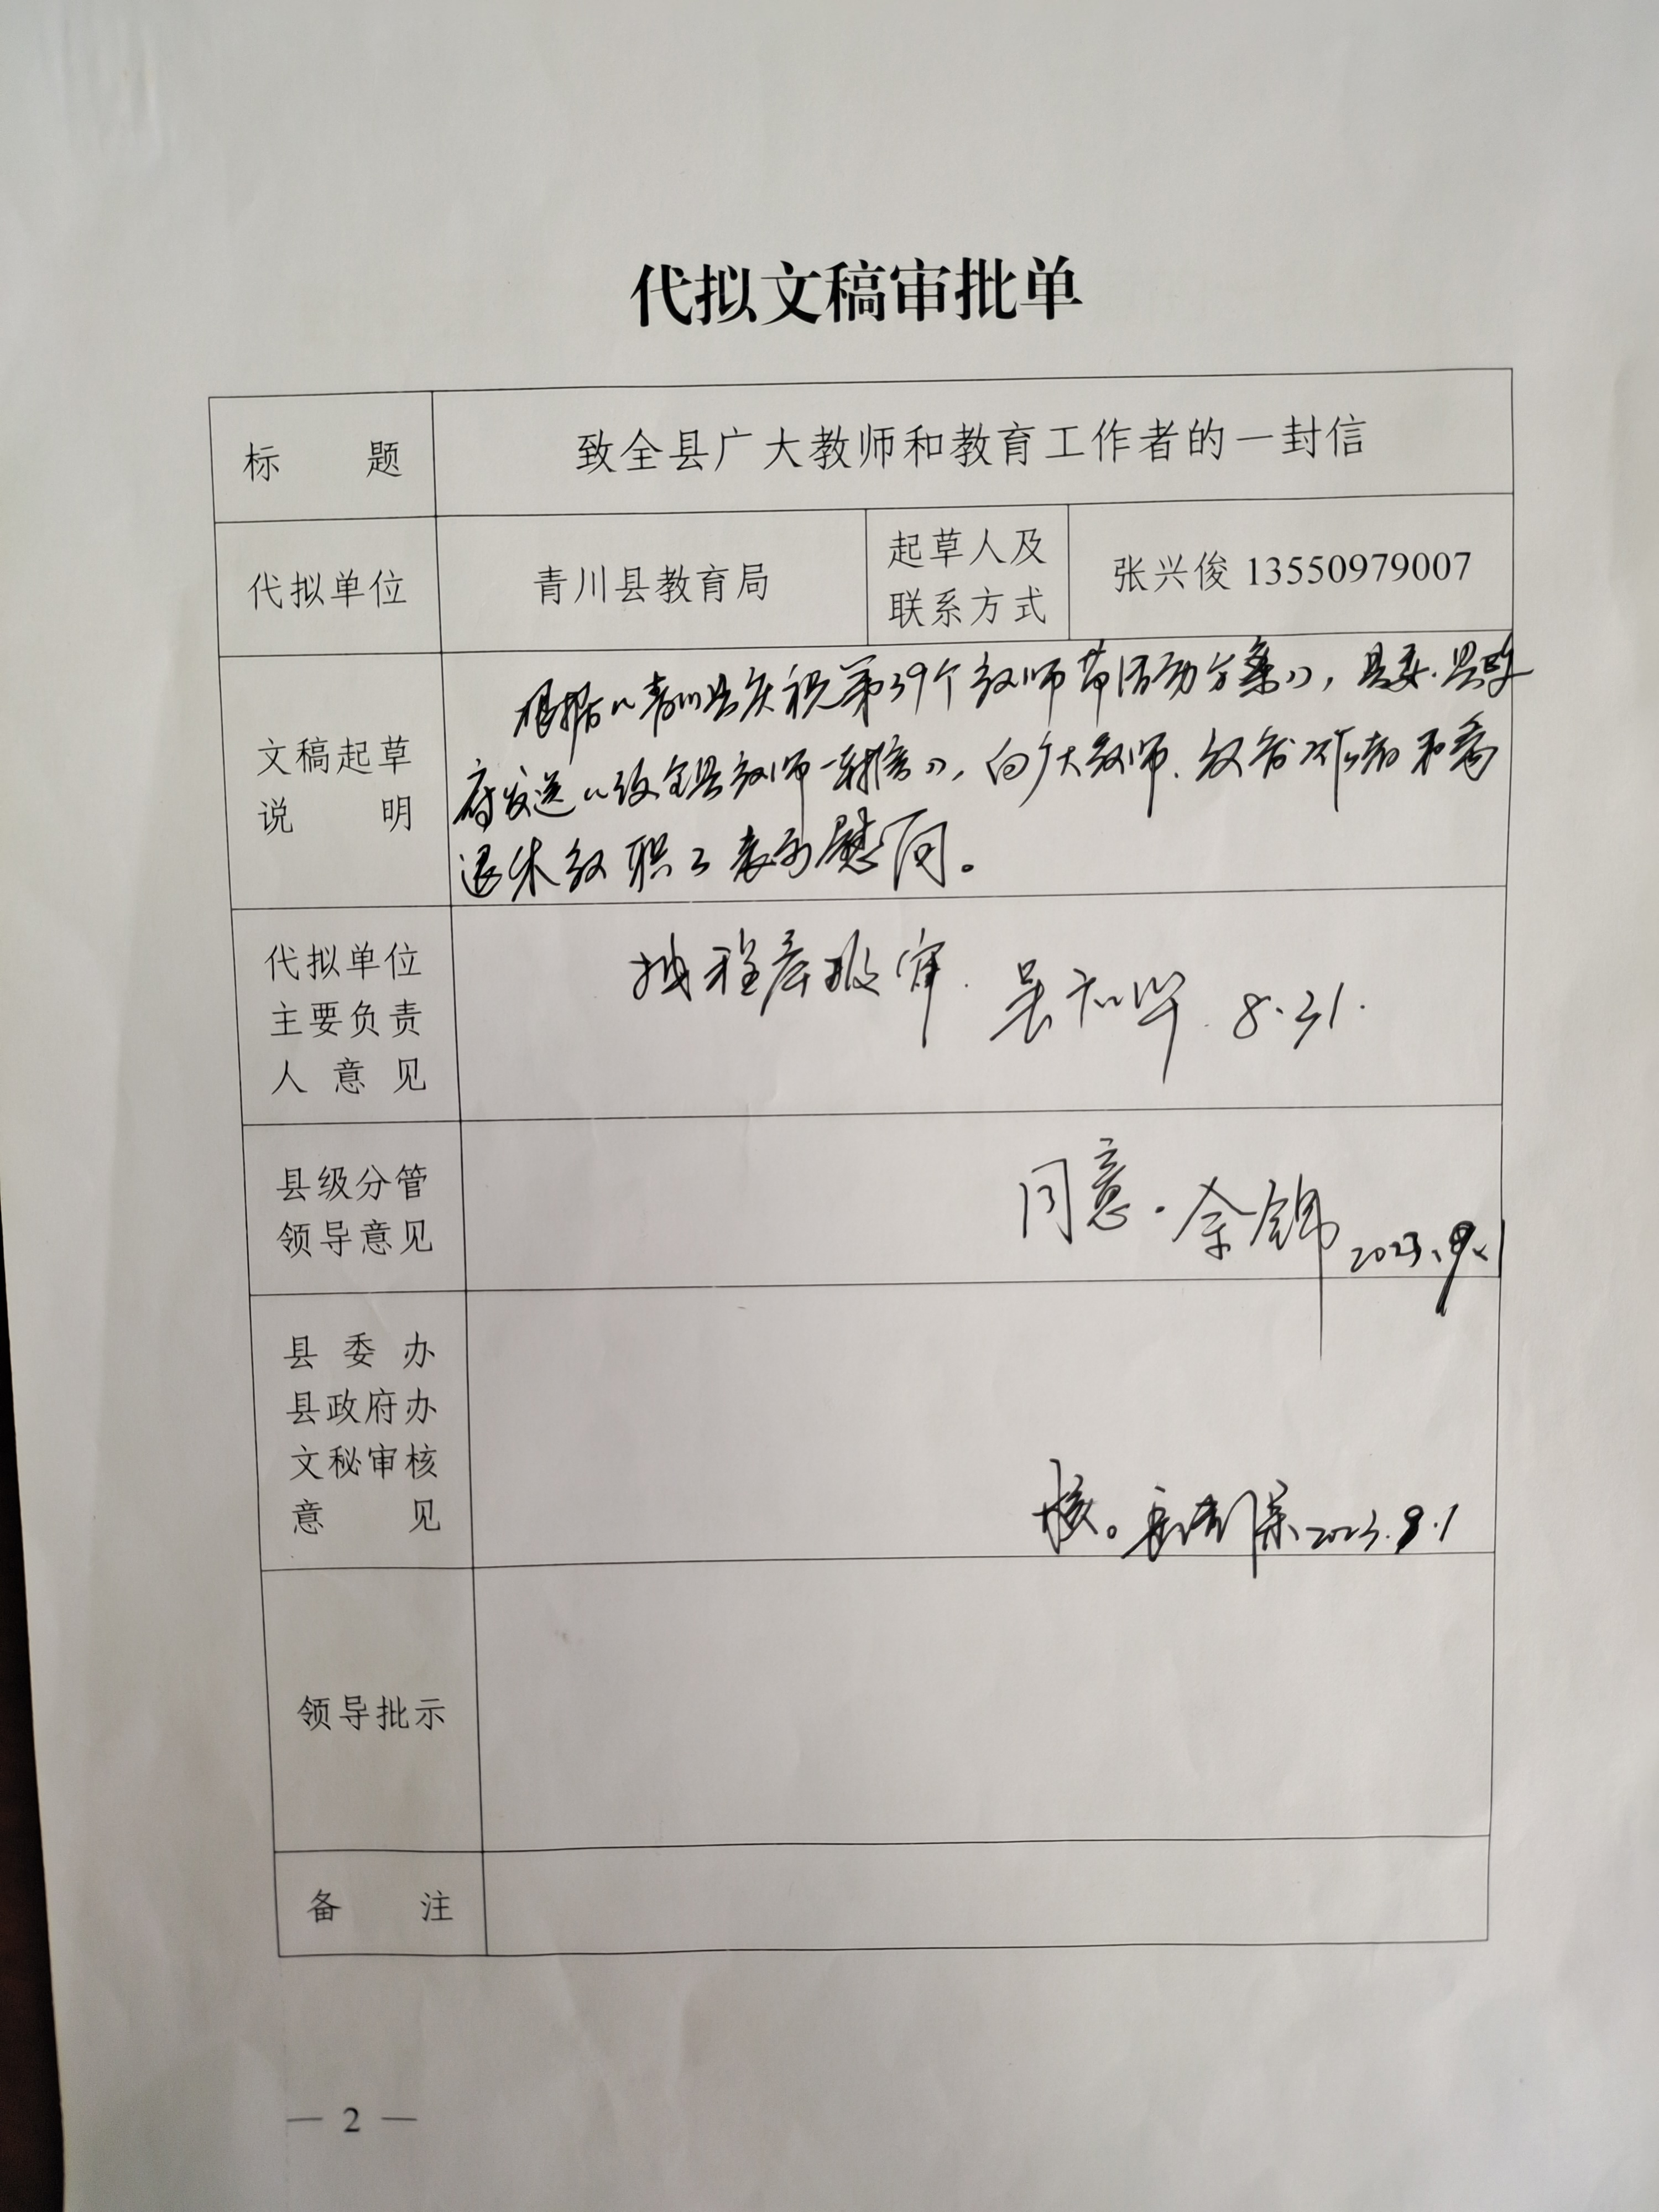 代拟文稿审批单
标 题
致全县广大教师和教育工作者的一封信
代拟单位
青川县教育局
起草人及
联系方式
张兴俊 13550979007
文稿起草
说 明
根据《青川县庆祝第39个教师节活动方案》，县委、县政
府发送《致全县教师一封信》，向广大教师、教育工作者和离
退休教职工表示慰问。
代拟单位
主要负责
人 意 见
按程序报审.
8.31.
县级分管
领导意见
同意. 余锦 2023.9.1
县 委 办
县政府办
文秘审核
意 见
核。 2023.9.1
领导批示
备 注
— 2 —